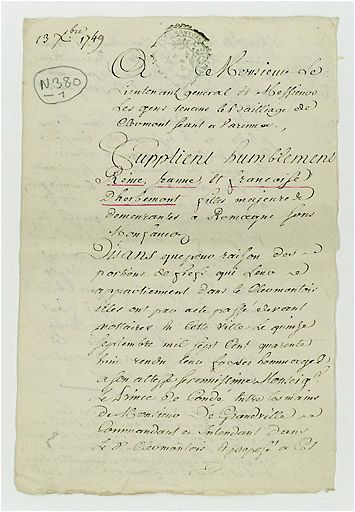 13 Xbre 1749
N. 380
-1
A Monsieur Le
Lieutenant general et Messieurs
Les gens tenans le Bailliage de
Clermont seant a Varennes,
Supplient humblement
Reine, Jeanne et francoise
Dherbemont filles majeures
demeurantes a Romagne sous
Monfaucon
Disans que pour raison des
portions de fiefs que leur
appartiennent dans le Clermontois
elles ont par acte passé devant
nottaires en cette ville le quinze
septembre mil sept cent quarante
huit rendu leur foy et hommage
a son altesse serenissime Monseigr
le Prince de Condé entre les mains
de Monsieur De Grandville
commandant et Intendant dans
le d. Clermontois